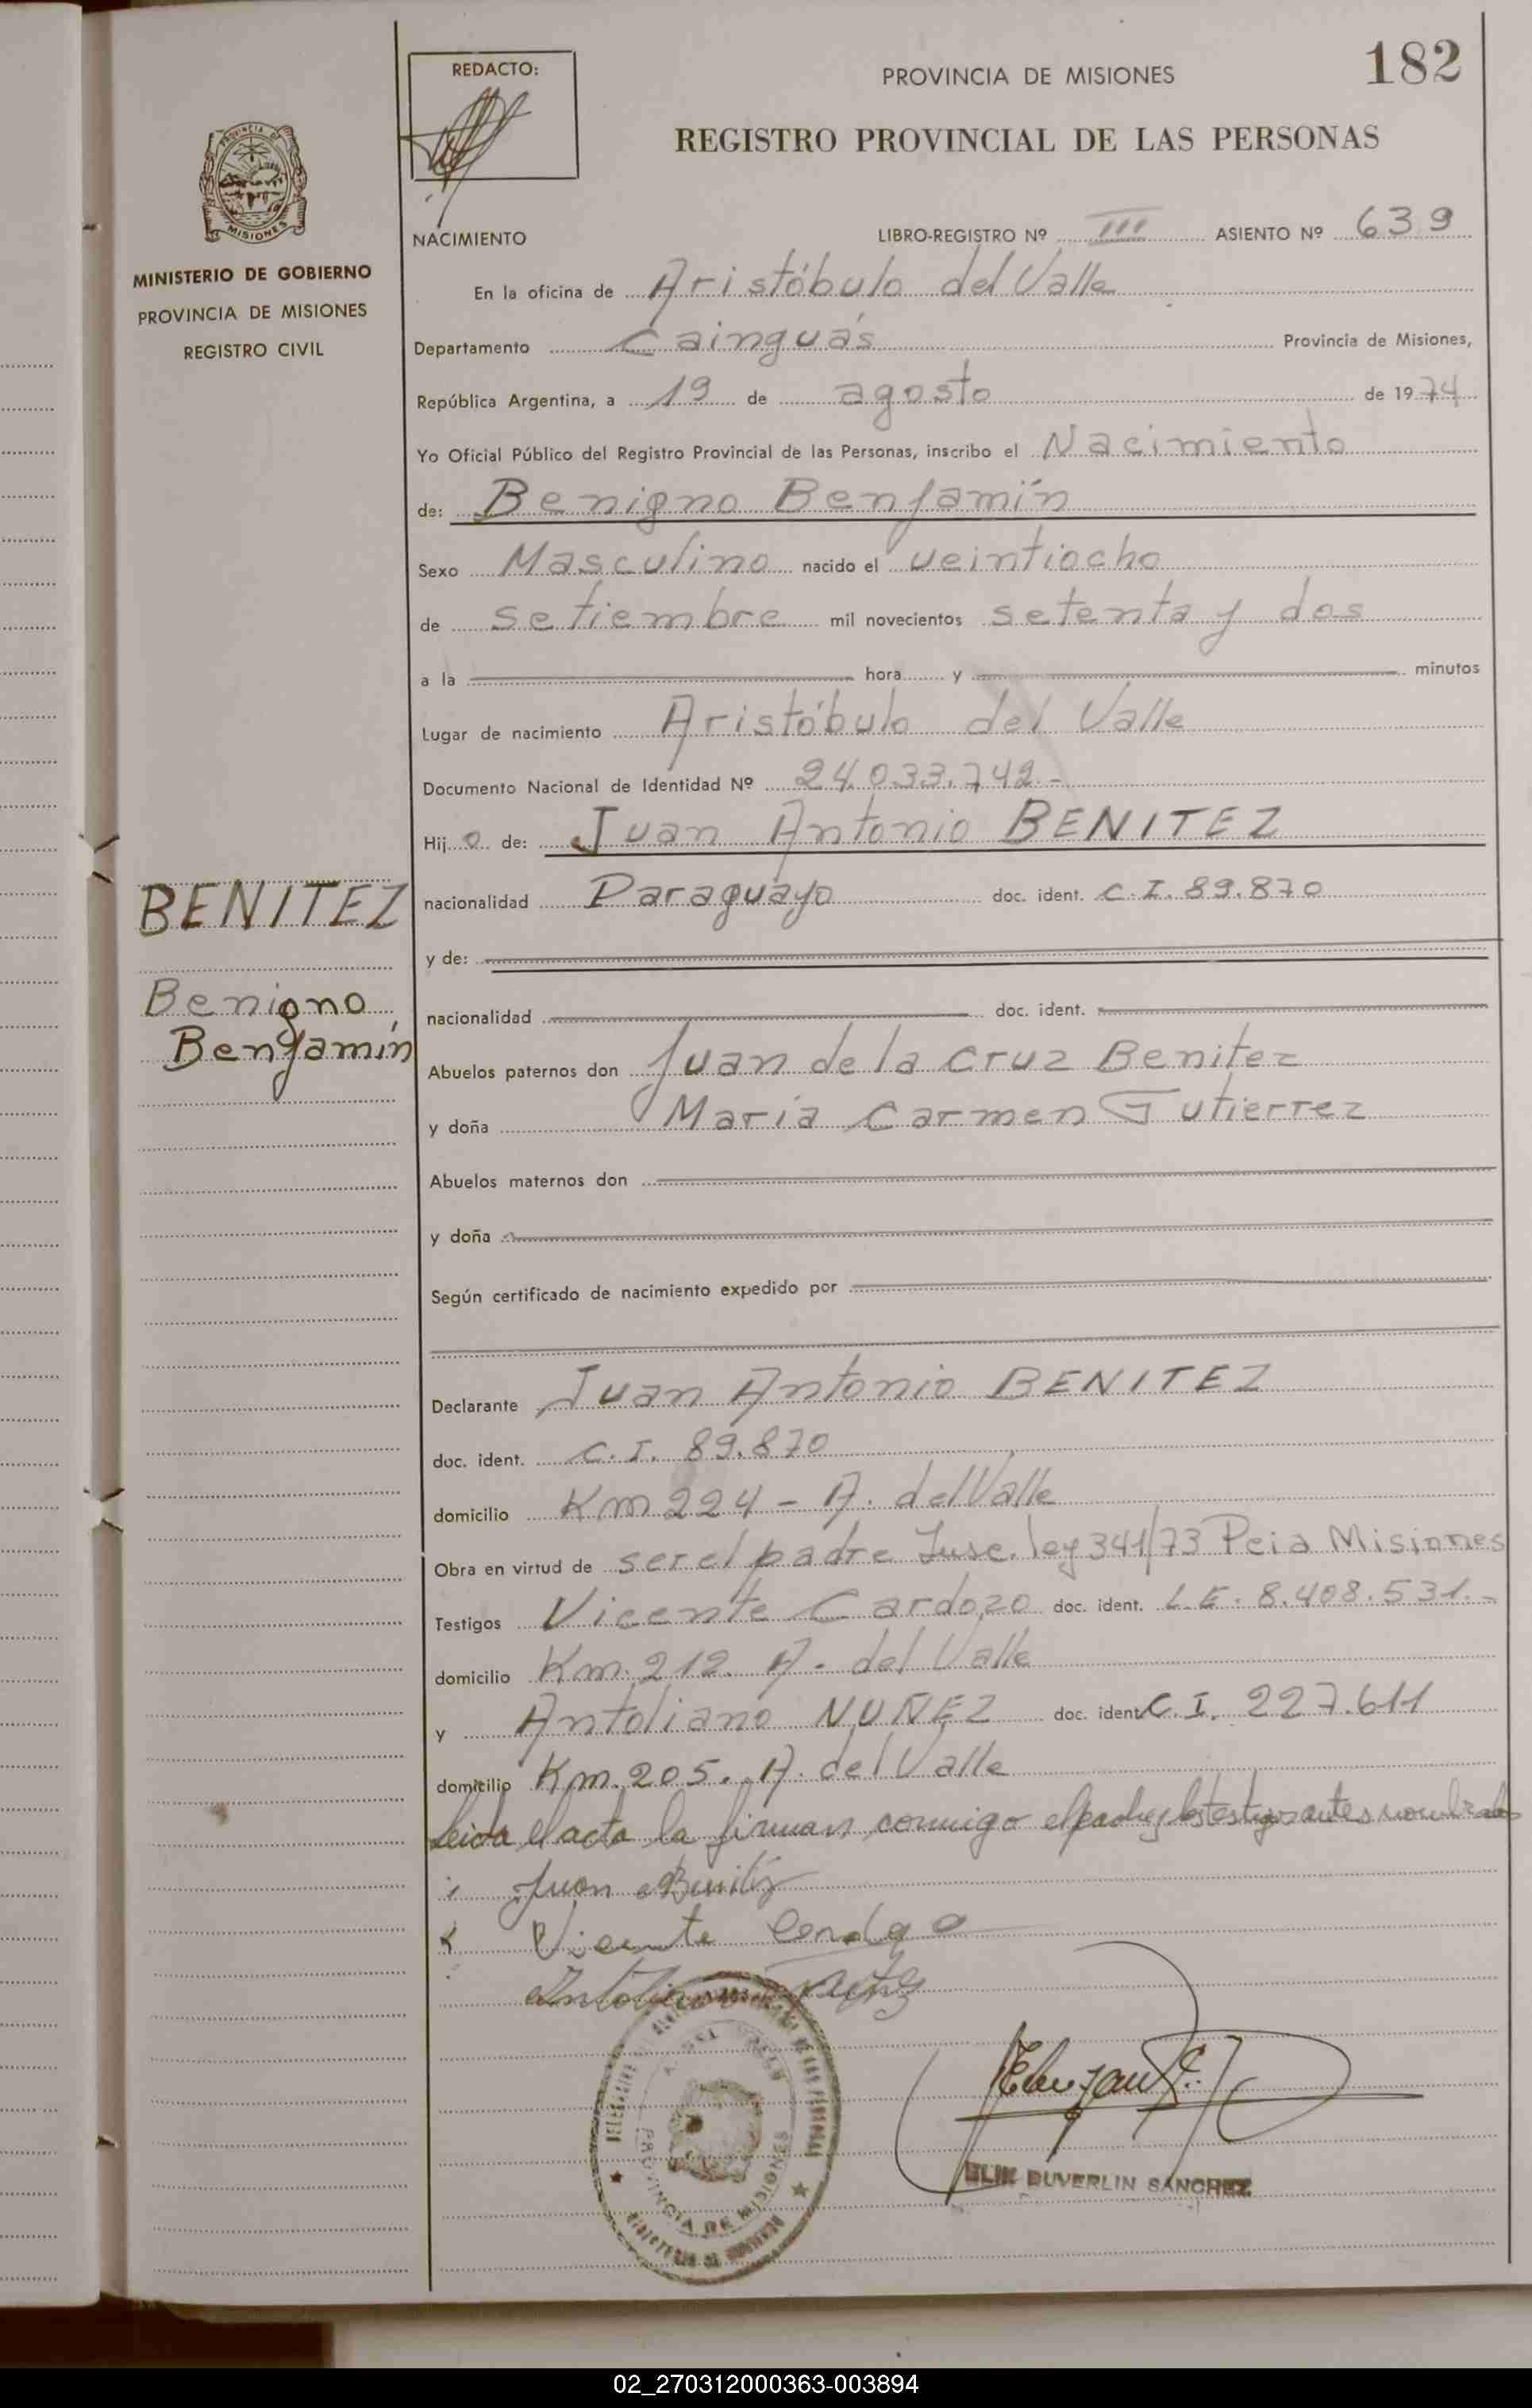 182
REDACTO:
PROVINCIA DE MISIONES
REGISTRO PROVINCIAL DE LAS PERSONAS
MISIONES
MINISTERIO DE GOBIERNO
PROVINCIA DE MISIONES
REGISTRO CIVIL
NACIMIENTO LIBRO-REGISTRO Nº III ASIENTO Nº 639
En la oficina de Aristóbulo del Valle
Departamento Cainguás Provincia de Misiones,
República Argentina, a 19 de agosto de 1974
Yo Oficial Público del Registro Provincial de las Personas, inscribo el Nacimiento
de: Benigno Benjamín
Sexo Masculino nacido el veintiocho
de setiembre mil novecientos setenta y dos
a la hora y minutos
Lugar de nacimiento Aristóbulo del Valle
Documento Nacional de Identidad Nº 24.033.742.-
Hijo de: Juan Antonio BENITEZ
BENITEZ
nacionalidad Paraguayo doc. ident. C.I. 89.870
y de:
Benigno
Benjamín
nacionalidad doc. ident.
Abuelos paternos don Juan de la Cruz Benitez
y doña María Carmen Gutierrez
Abuelos maternos don
y doña
Según certificado de nacimiento expedido por
Declarante Juan Antonio BENITEZ
doc. ident. C.I. 89.870
domicilio Km 224 - A. del Valle
Obra en virtud de ser el padre Insc. ley 341/73 Pcia Misiones
Testigos Vicente Cardozo doc. ident. L.E. 8.408.531.-
domicilio Km. 212. A. del Valle
y Antoliano NUÑEZ doc. ident C.I. 227.611
domicilio Km. 205. A. del Valle
Leida el acta la firman conmigo el padre y los testigos antes nombrados
Juan Benitez
Vicente
PROVINCIA DE MISIONES
DUVERLIN SANCHEZ
02_270312000363-003894